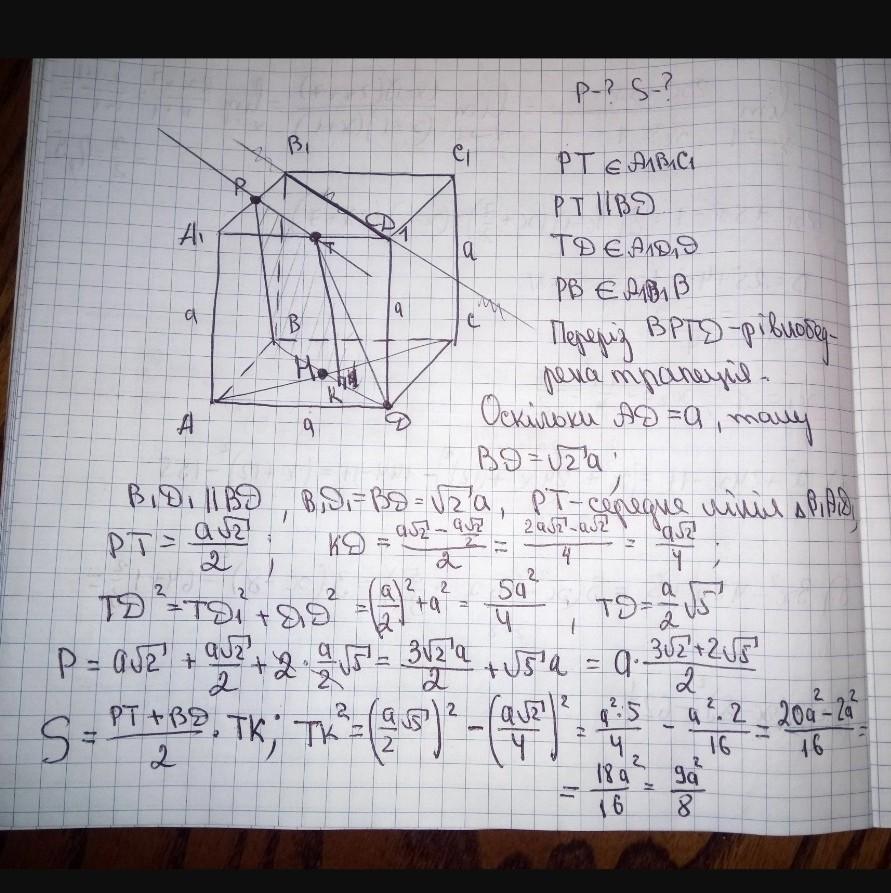 P-? S-?
B₁ C₁
P
A₁ T D₁
a a a
B C
M K H
A a D
PT ∈ A₁B₁C₁
PT || BD
TD ∈ A₁D₁D
PB ∈ A₁B₁B
Переріз BPTD - рівнобед-
рена трапеція.
Оскільки AD = a, тому
BD = √2 a;
B₁D₁ || BD, B₁D₁ = BD = √2 a, PT - середня лінія △B₁A₁D₁,
PT = a√2/2; KD = (a√2 - a√2/2)/2 = (2a√2 - a√2)/4 = a√2/4;
TD² = TD₁² + D₁D² = (a/2)² + a² = 5a²/4; TD = a/2 √5
P = a√2 + a√2/2 + 2 · a/2 √5 = 3√2 a/2 + √5 a = a · (3√2 + 2√5)/2
S = (PT + BD)/2 · TK; TK² = (a/2 √5)² - (a√2/4)² = a²·5/4 - a²·2/16 = (20a² - 2a²)/16 =
= 18a²/16 = 9a²/8